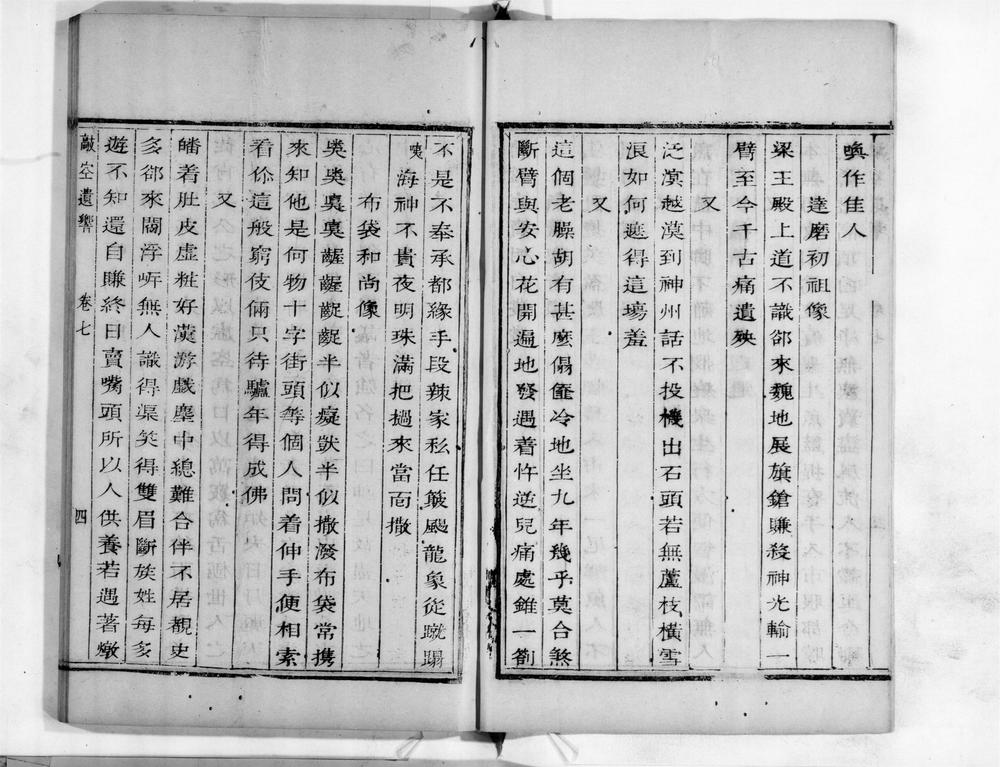 喚作佳人
達磨初祖像
梁王殿上道不識卻來魏地展旗鎗賺殺神光輸一
臂至今千古痛遺殃
又
泛梁越漠到神州話不投機出石頭若無蘆枝橫雪
浪如何遮得這場羞
又
這個老臊胡有甚麼傷鹽冷地坐九年幾乎莫合煞
斷臂與安心花開遍地發遇着忤逆兒痛處錐一劄
不是不奉承都緣手段辣家私任簸颺龍象從蹴蹋
咦海神不貴夜明珠滿把撾來當面撒
布袋和尚像
奕奕裏裏齷齷齪齪半似癡獃半似撒潑布袋常携
來知他是何物十字街頭等個人問着伸手便相索
看伱這般窮伎倆只待驢年得成佛
又
皤着肚皮虛粧好漢游戲塵中總難合伴不居覩史
多卻來閻浮岍無人識得渠笑得雙眉斷族姓每多
遊不知還自賺終日賣嘴頭所以人供養若遇著燉
敲空遺響 卷七 四